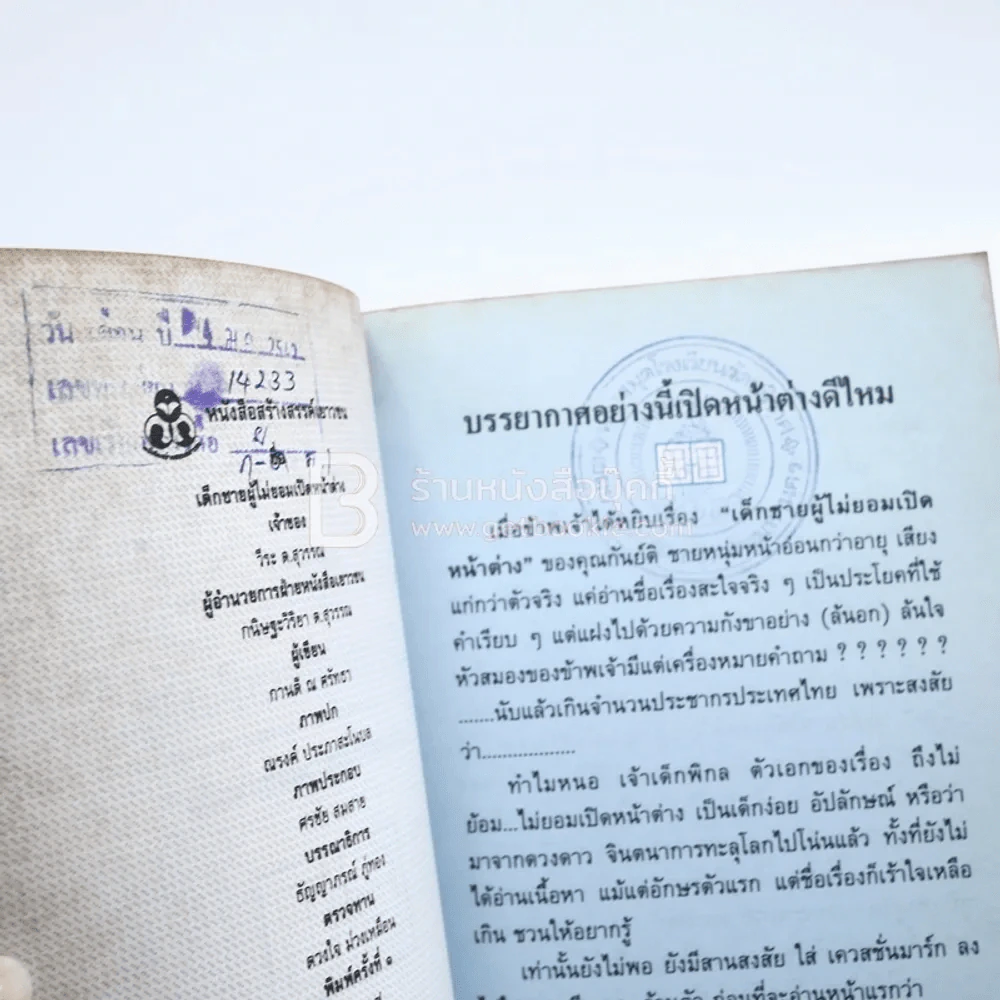 วัน เดือน ปี 4 ม.ค. 2512
14233
หนังสือสร้างสรรค์เยาวชน
เด็กชายผู้ไม่ยอมเปิดหน้าต่าง
เจ้าของ
วีระ ต.สุวรรณ
ผู้อำนวยการฝ่ายหนังสือเยาวชน
กนิษฐะวิริยา ต.สุวรรณ
ผู้เขียน
กานติ ณ ศรัทธา
ภาพปก
ณรงค์ ประภาสะโนบล
ภาพประกอบ
ศรชัย สมสาย
บรรณาธิการ
ธัญญาภรณ์ ภู่ทอง
ตรวจทาน
ดวงใจ ม่วงเหมือน
พิมพ์ครั้งที่ ๑
บรรยากาศอย่างนี้เปิดหน้าต่างดีไหม
เมื่อข้าพเจ้าได้หยิบเรื่อง "เด็กชายผู้ไม่ยอมเปิด
หน้าต่าง" ของคุณกันย์ติ ชายหนุ่มหน้าอ่อนกว่าอายุ เสียง
แก่กว่าตัวจริง แค่อ่านชื่อเรื่องสะใจจริง ๆ เป็นประโยคที่ใช้
คำเรียบ ๆ แต่แฝงไปด้วยความกังขาอย่าง (ล้นอก) ล้นใจ
หัวสมองของข้าพเจ้ามีแต่เครื่องหมายคำถาม ? ? ? ? ? ?
.......นับแล้วเกินจำนวนประชากรประเทศไทย เพราะสงสัย
ว่า..................
ทำไมหนอ เจ้าเด็กพิกล ตัวเอกของเรื่อง ถึงไม่
ย้อม...ไม่ยอมเปิดหน้าต่าง เป็นเด็กง่อย อัปลักษณ์ หรือว่า
มาจากดวงดาว จินตนาการทะลุโลกไปโน่นแล้ว ทั้งที่ยังไม่
ได้อ่านเนื้อหา แม้แต่อักษรตัวแรก แต่ชื่อเรื่องก็เร้าใจเหลือ
เกิน ชวนให้อยากรู้
เท่านั้นยังไม่พอ ยังมีสานสงสัย ใส่ เควสชั่นมาร์ก ลง
ก่อนที่จะอ่านหน้าแรกว่า
B ร้านหนังสือบุ๊คกี้